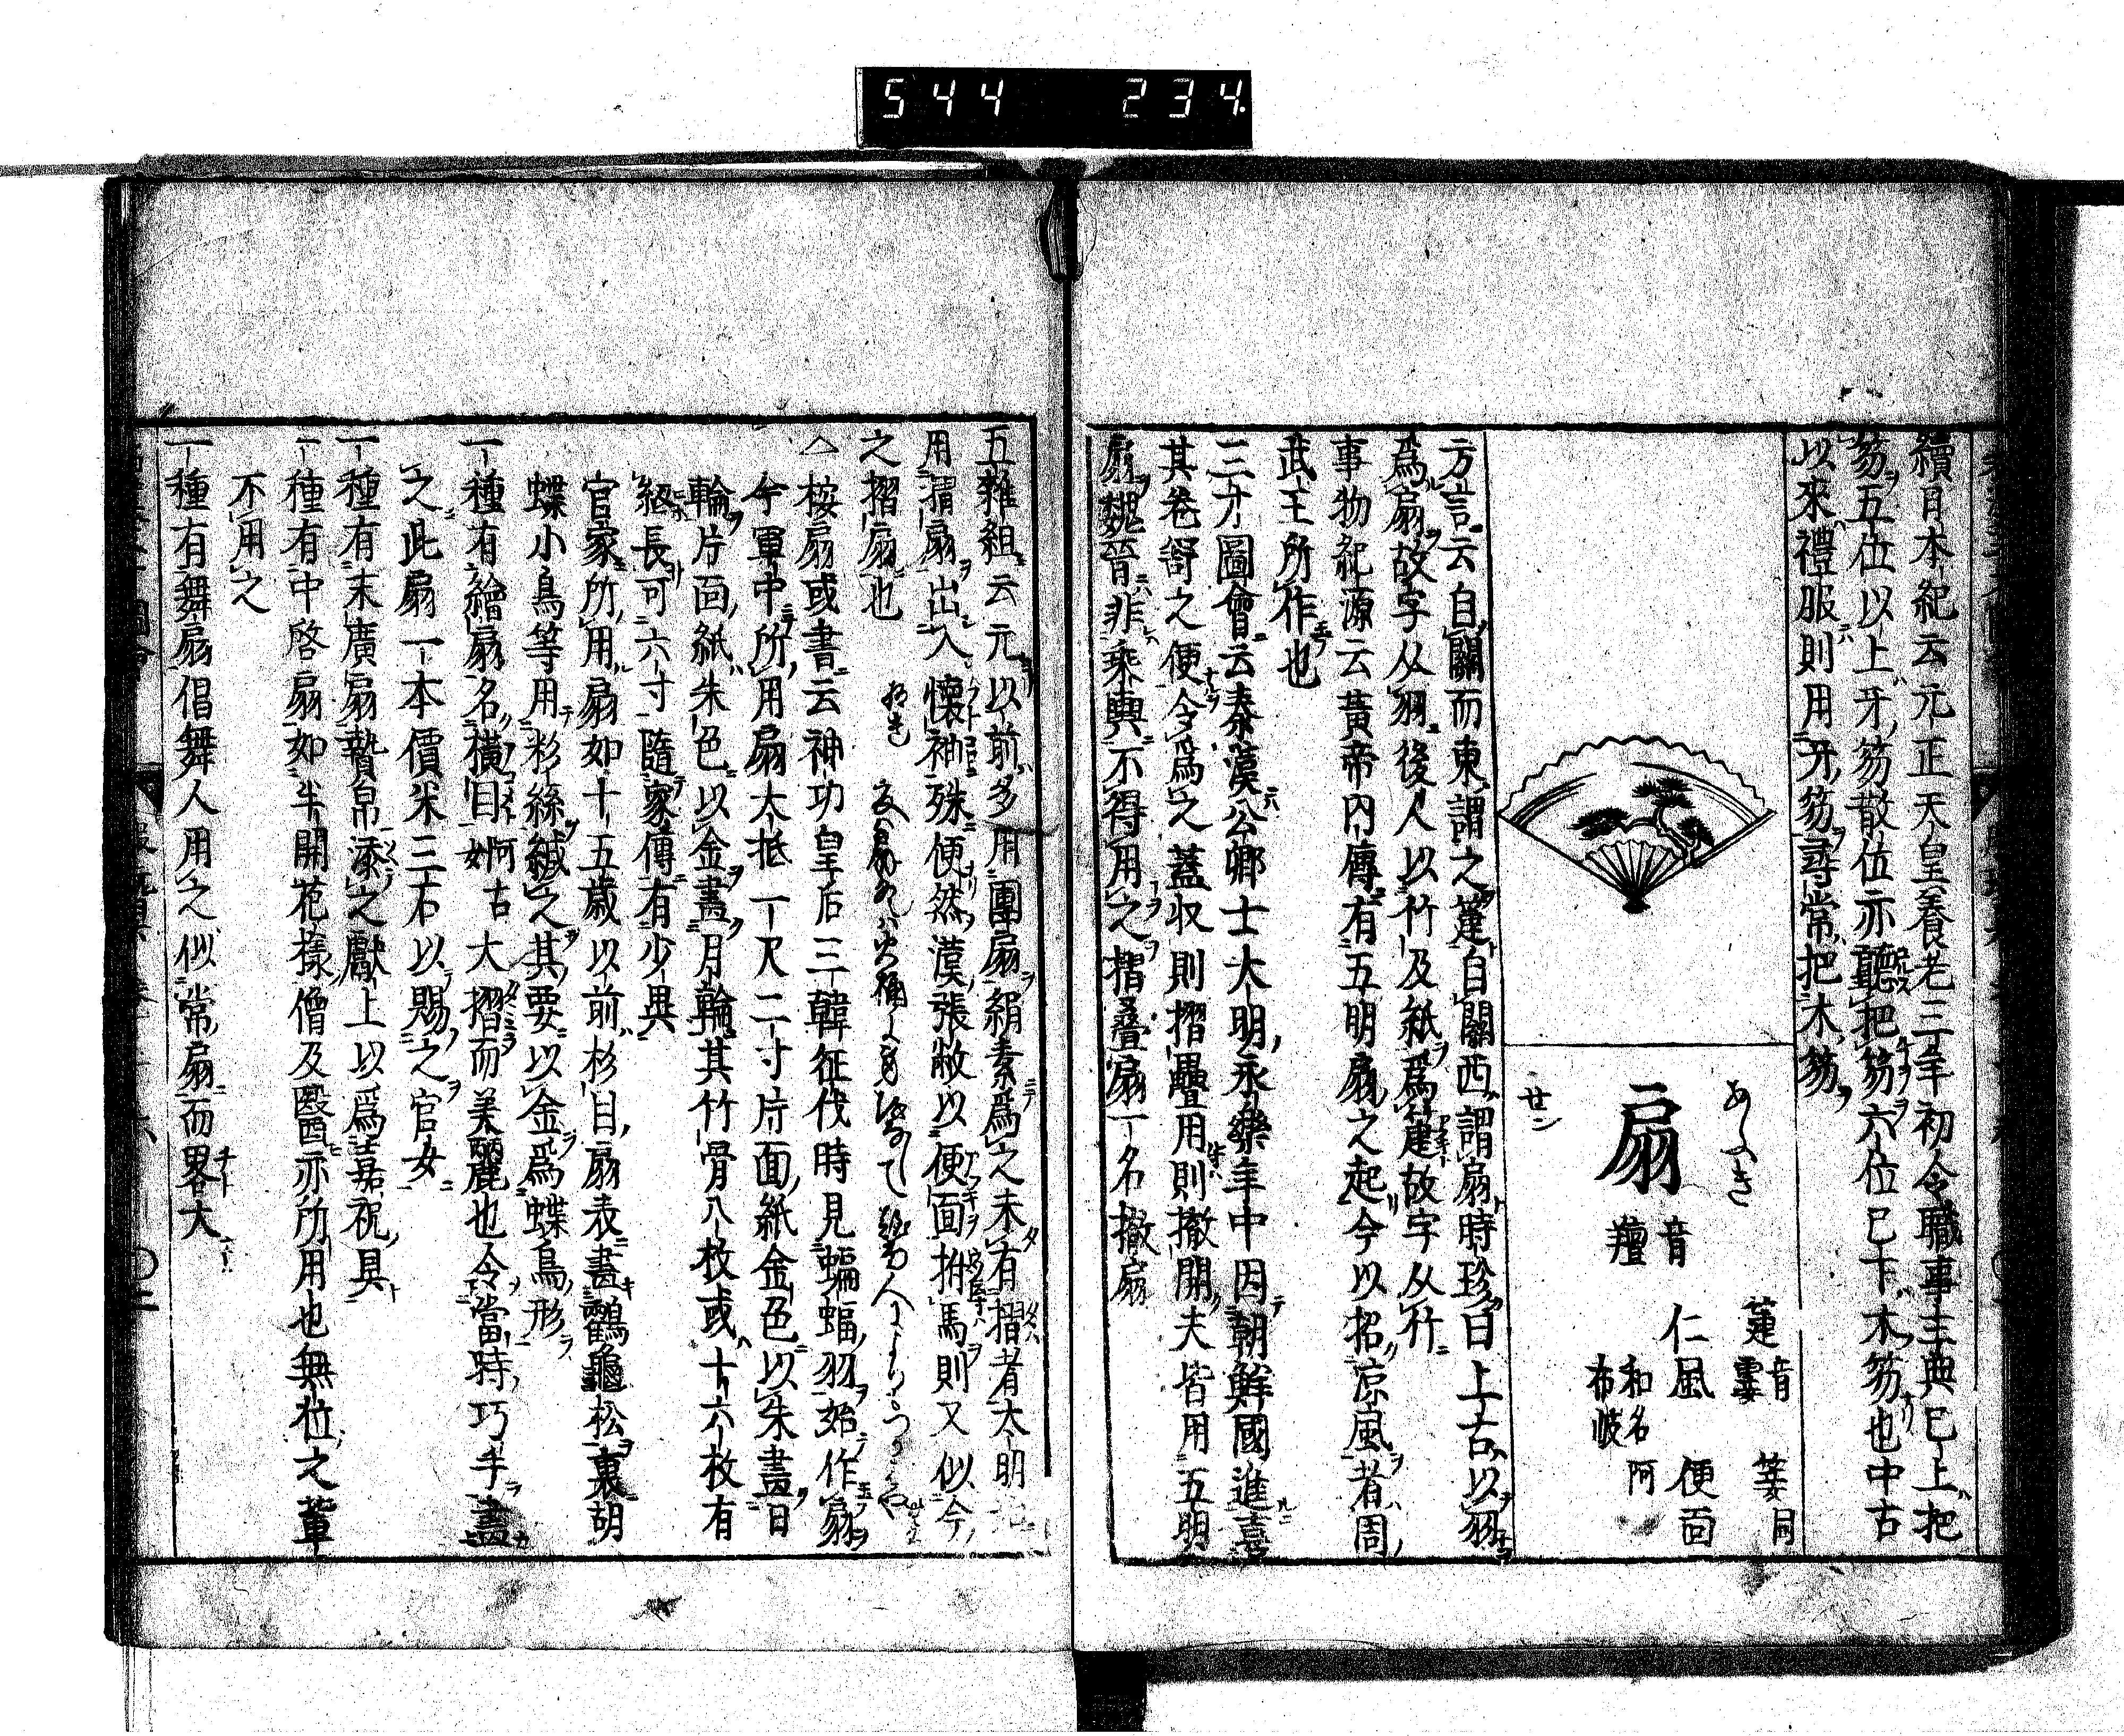 544 234
續日本紀云元正天皇養老三年初令職事主典已上把
笏五位以上牙笏散位亦聽把笏六位已下木笏也中古
以來禮服則用牙笏尋常把木笏
あふき
扇
音
羶
せン
箑 音霎 萐同
仁風 便面
和名 阿
布岐
方言云自關而東謂之箑自關西謂扇時珍曰上古以羽
爲扇故字从羽後人以竹及紙爲箑故字从竹
事物紀源云黃帝內傳有五明扇之起今以招涼風者周
武王所作也
三才圖會云秦漢公卿士大明永樂年中因朝鮮國進喜
其卷舒之便令爲之蓋収則摺疊用則撒開夫皆用五明
扇魏晉非乘輿不得用之摺疊扇一名撒扇
五雜組云元以前多用團扇絹素爲之未有摺者大明
用摺扇出入懷袖殊便然漢張敞以便面拊馬則又似今
之摺扇也
△按扇或書云神功皇后三韓征伐時見蝙蝠羽始作扇
今軍中所用扇大抵一尺二寸片面紙金色以朱畫日
輪片面紙朱色以金畫月輪其竹骨八枚或十六枚有
緪長可六寸隨家傳有少異
官家所用扇如十五歲以前杉目扇表畫鶴龜松裏胡
蝶小鳥等用杉絲緘之其要以金爲蝶鳥形
一種有繪扇名橫目 大摺而美麗也令當時巧手畫
之此扇一本價米三石以賜之官女
一種有末廣扇贄帛添之獻上以爲嘉祝具
一種有中啓扇如半開花樣僧及醫亦所用也無位之輩
不用之
一種有舞扇倡舞人用之似常扇而畧大